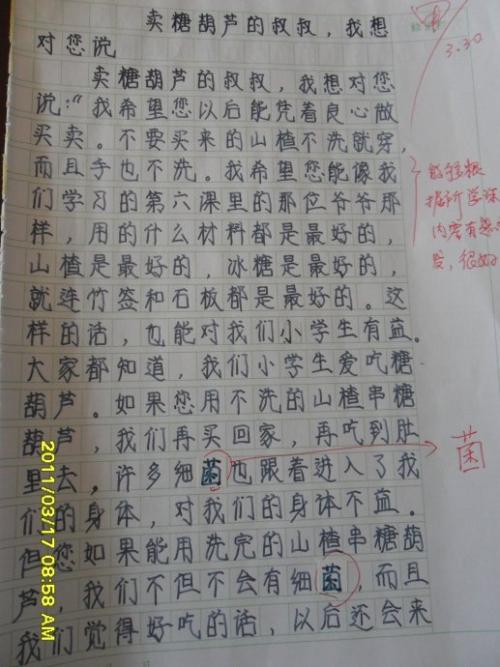 卖糖葫芦的叔叔，我想
对您说
卖糖葫芦的叔叔，我想对您
说："我希望您以后能凭着良心做
买卖。不要买来的山楂不洗就穿，
而且手也不洗。我希望您能像我
们学习的第六课里的那位爷爷那
样，用的什么材料都是最好的，
山楂是最好的，冰糖是最好的，
就连竹签和石板都是最好的。这
样的话，也能对我们小学生有益。
大家都知道，我们小学生爱吃糖
葫芦。如果您用不洗的山楂串糖
葫芦，我们再买回家，再吃到肚
里去，许多细菌也跟着进入了我
们的身体，对我们的身体不益。
但您如果能用洗完的山楂串糖葫
芦，我们不但不会有细菌，而且
我们觉得好吃的话，以后还会来
3.30
能够根
据所学课
内容有感
发，很好
菌
2011/03/17 08:58 AM